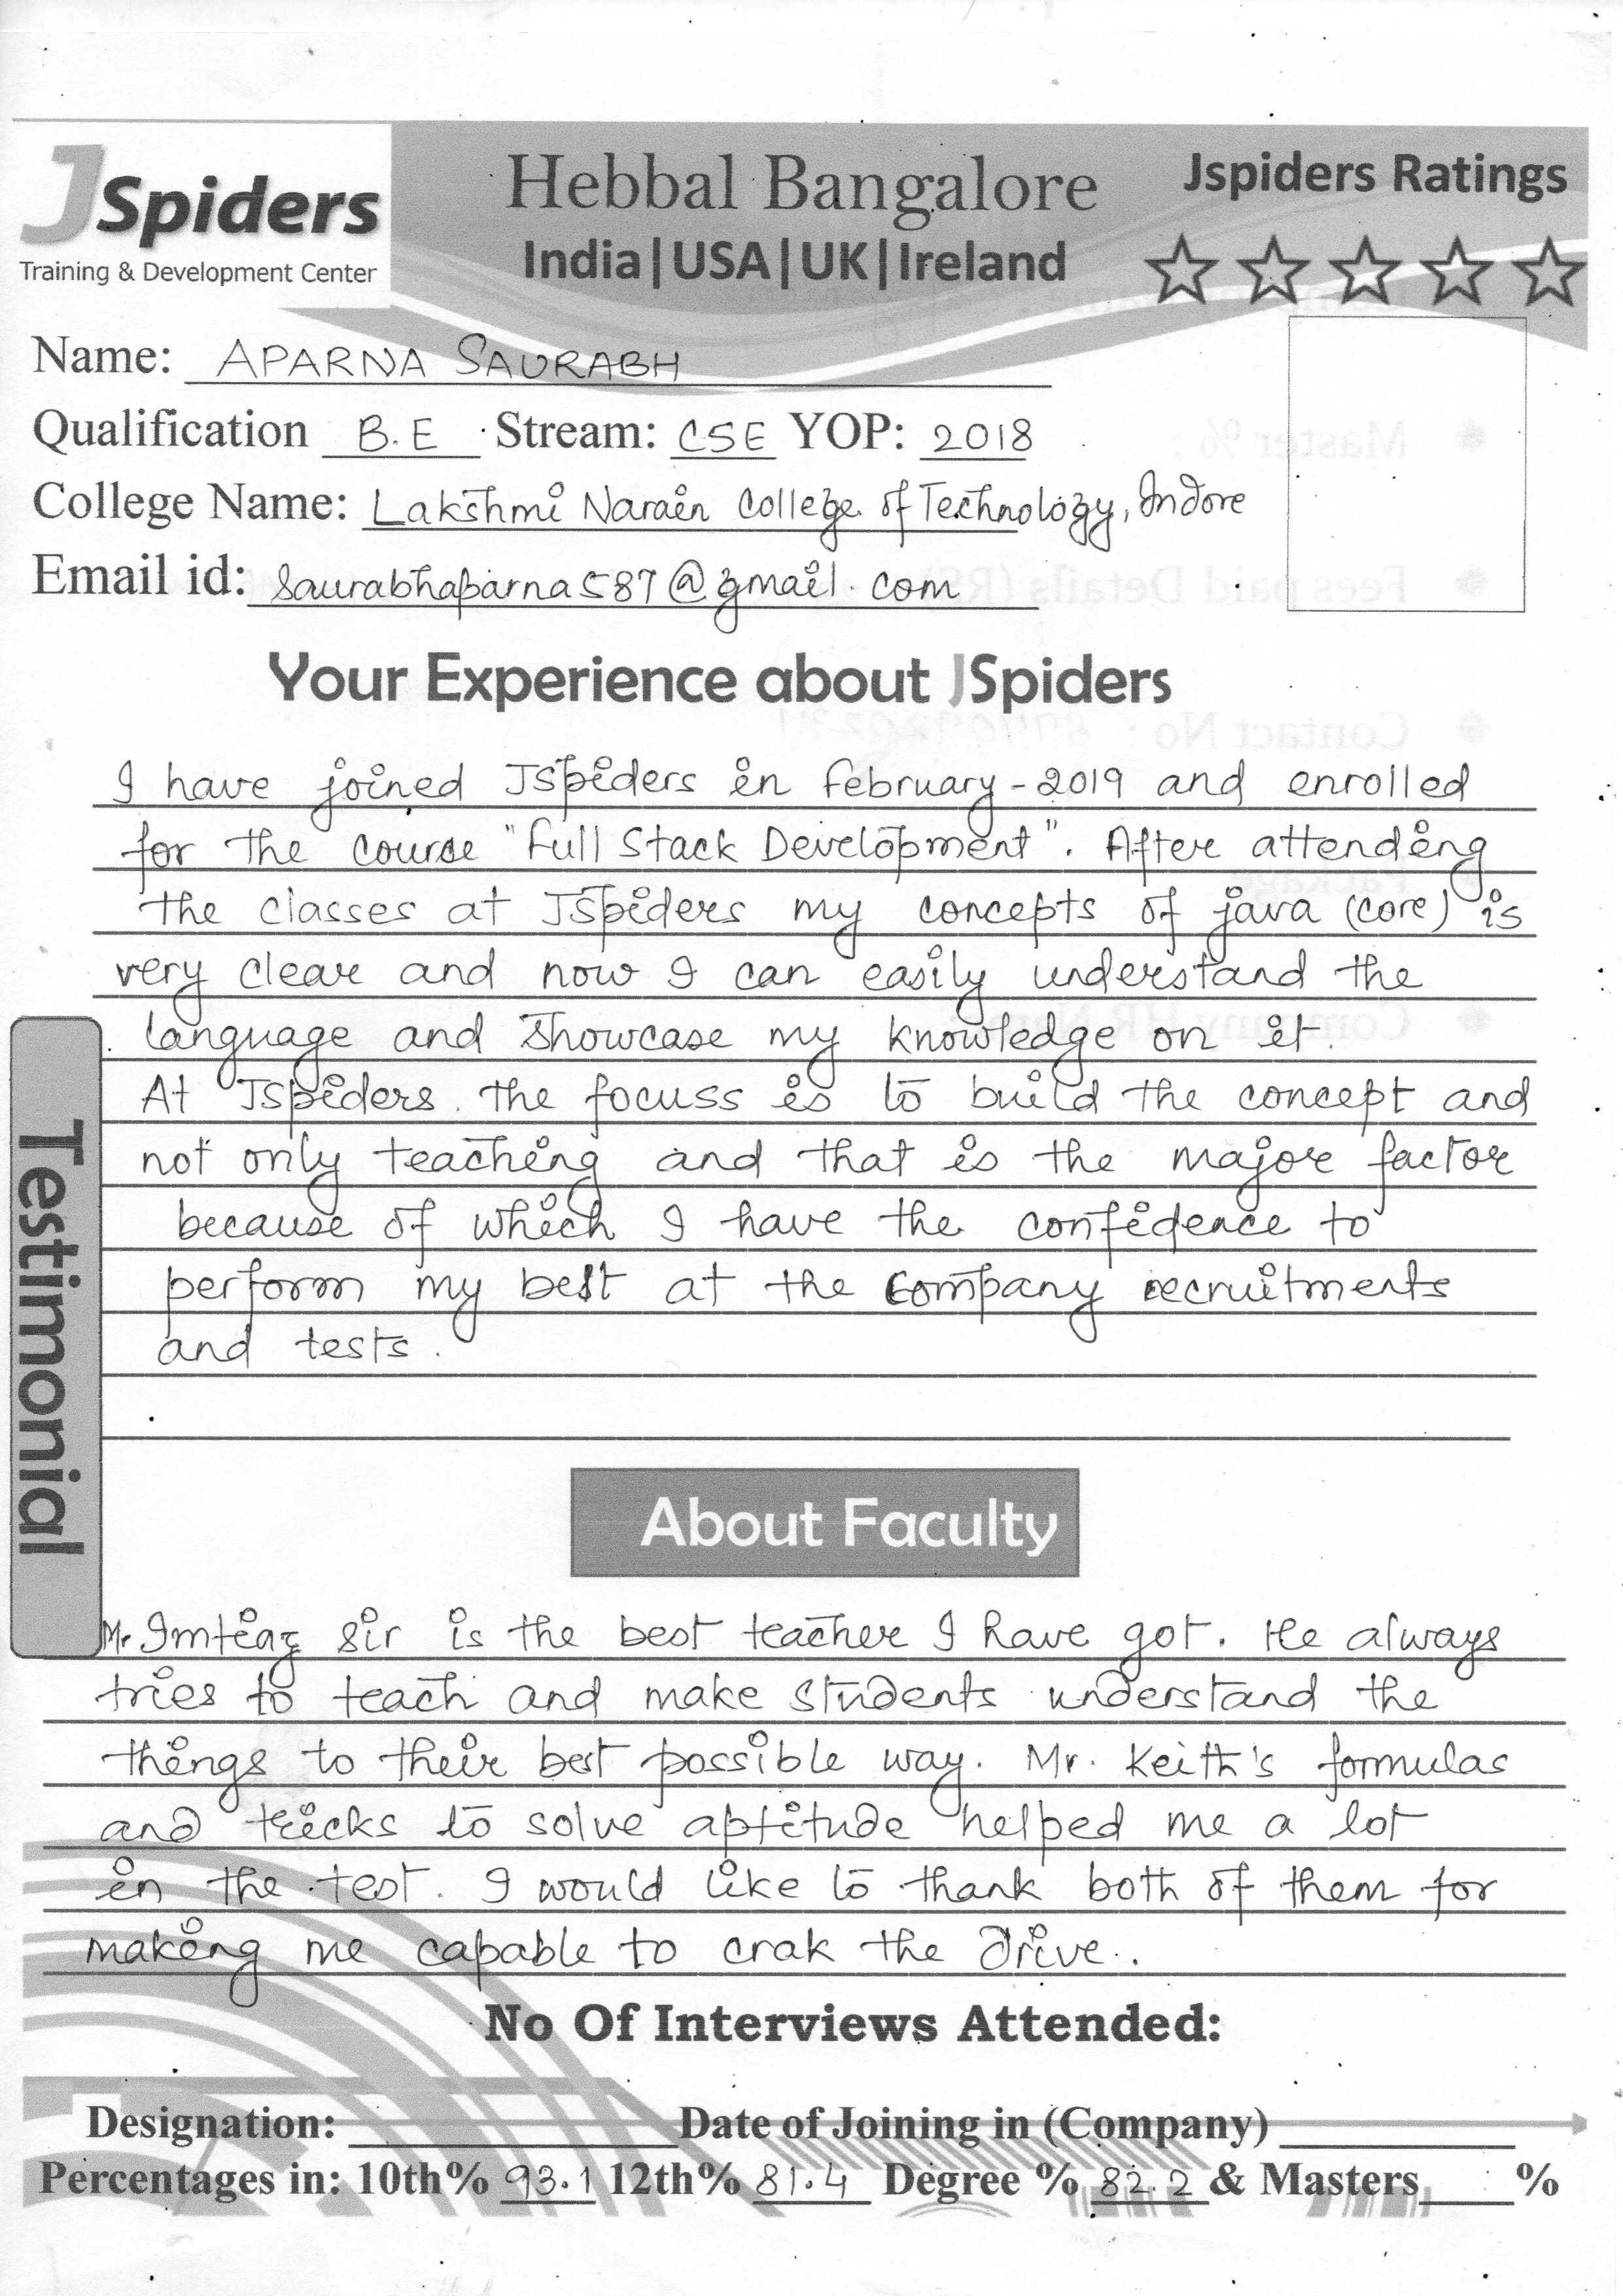 JSpiders
Training & Development Center
Hebbal Bangalore
India|USA|UK|Ireland
Jspiders Ratings
Name: APARNA SAURABH
Qualification B.E Stream: CSE YOP: 2018
College Name: Lakshmi Narain College of Technology, Indore
Email id: saurabhaparna587@gmail.com
Your Experience about JSpiders
I have joined JSpiders in february-2019 and enrolled
for the course "full Stack Development". After attending
the classes at JSpiders my concepts of java (core) is
very clear and now I can easily understand the
language and showcase my knowledge on it.
At JSpiders the focuss is to build the concept and
not only teaching and that is the major factor
because of which I have the confidence to
perform my best at the company recruitments
and tests.
Testimonial
About Faculty
Mr. Imtiaz sir is the best teacher I have got. He always
tries to teach and make students understand the
things to their best possible way. Mr. Keith's formulas
and tricks to solve aptitude helped me a lot
in the test. I would like to thank both of them for
making me capable to crak the drive.
No Of Interviews Attended:
Designation: Date of Joining in (Company)
Percentages in: 10th% 93.1 12th% 81.4 Degree % 82.2 & Masters %